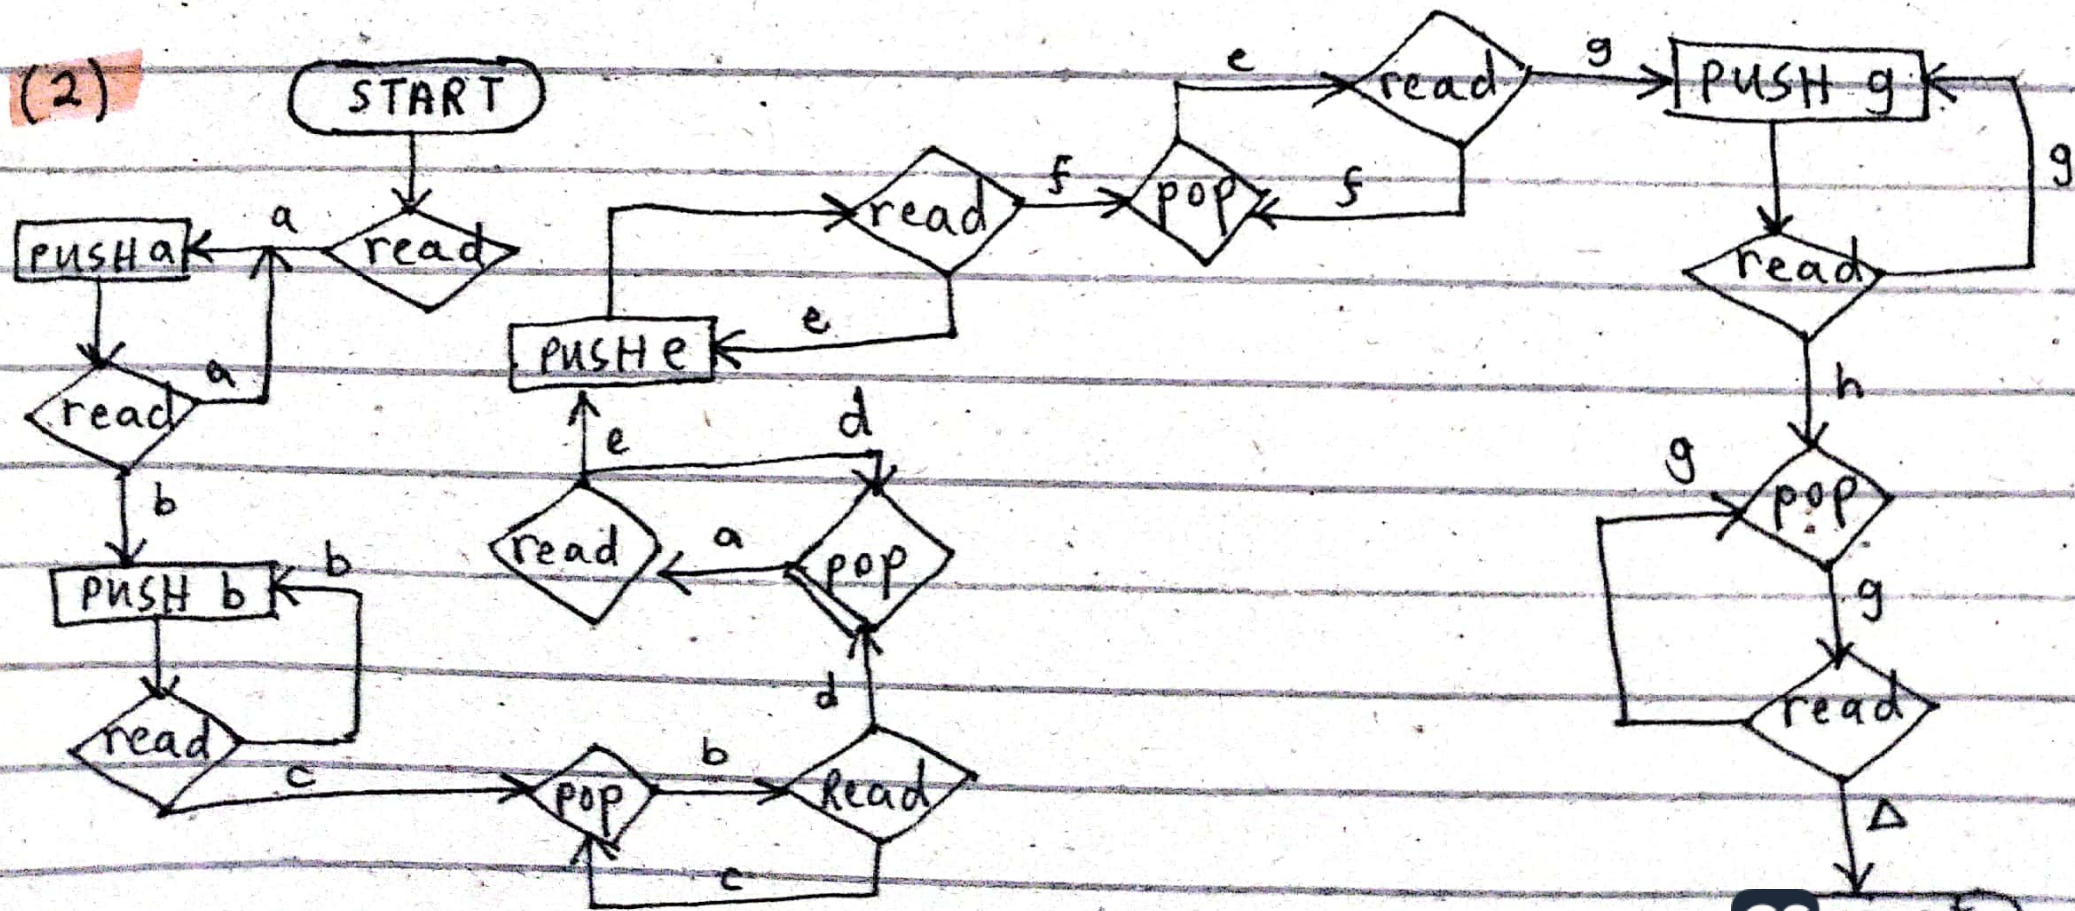 (2)
START
read
a
PUSH a
read
a
b
PUSH b
b
read
c
pop
b
Read
c
d
pop
a
read
d
e
PUSH e
read
e
f
pop
e
read
f
g
PUSH g
g
read
h
pop
g
read
g
Δ